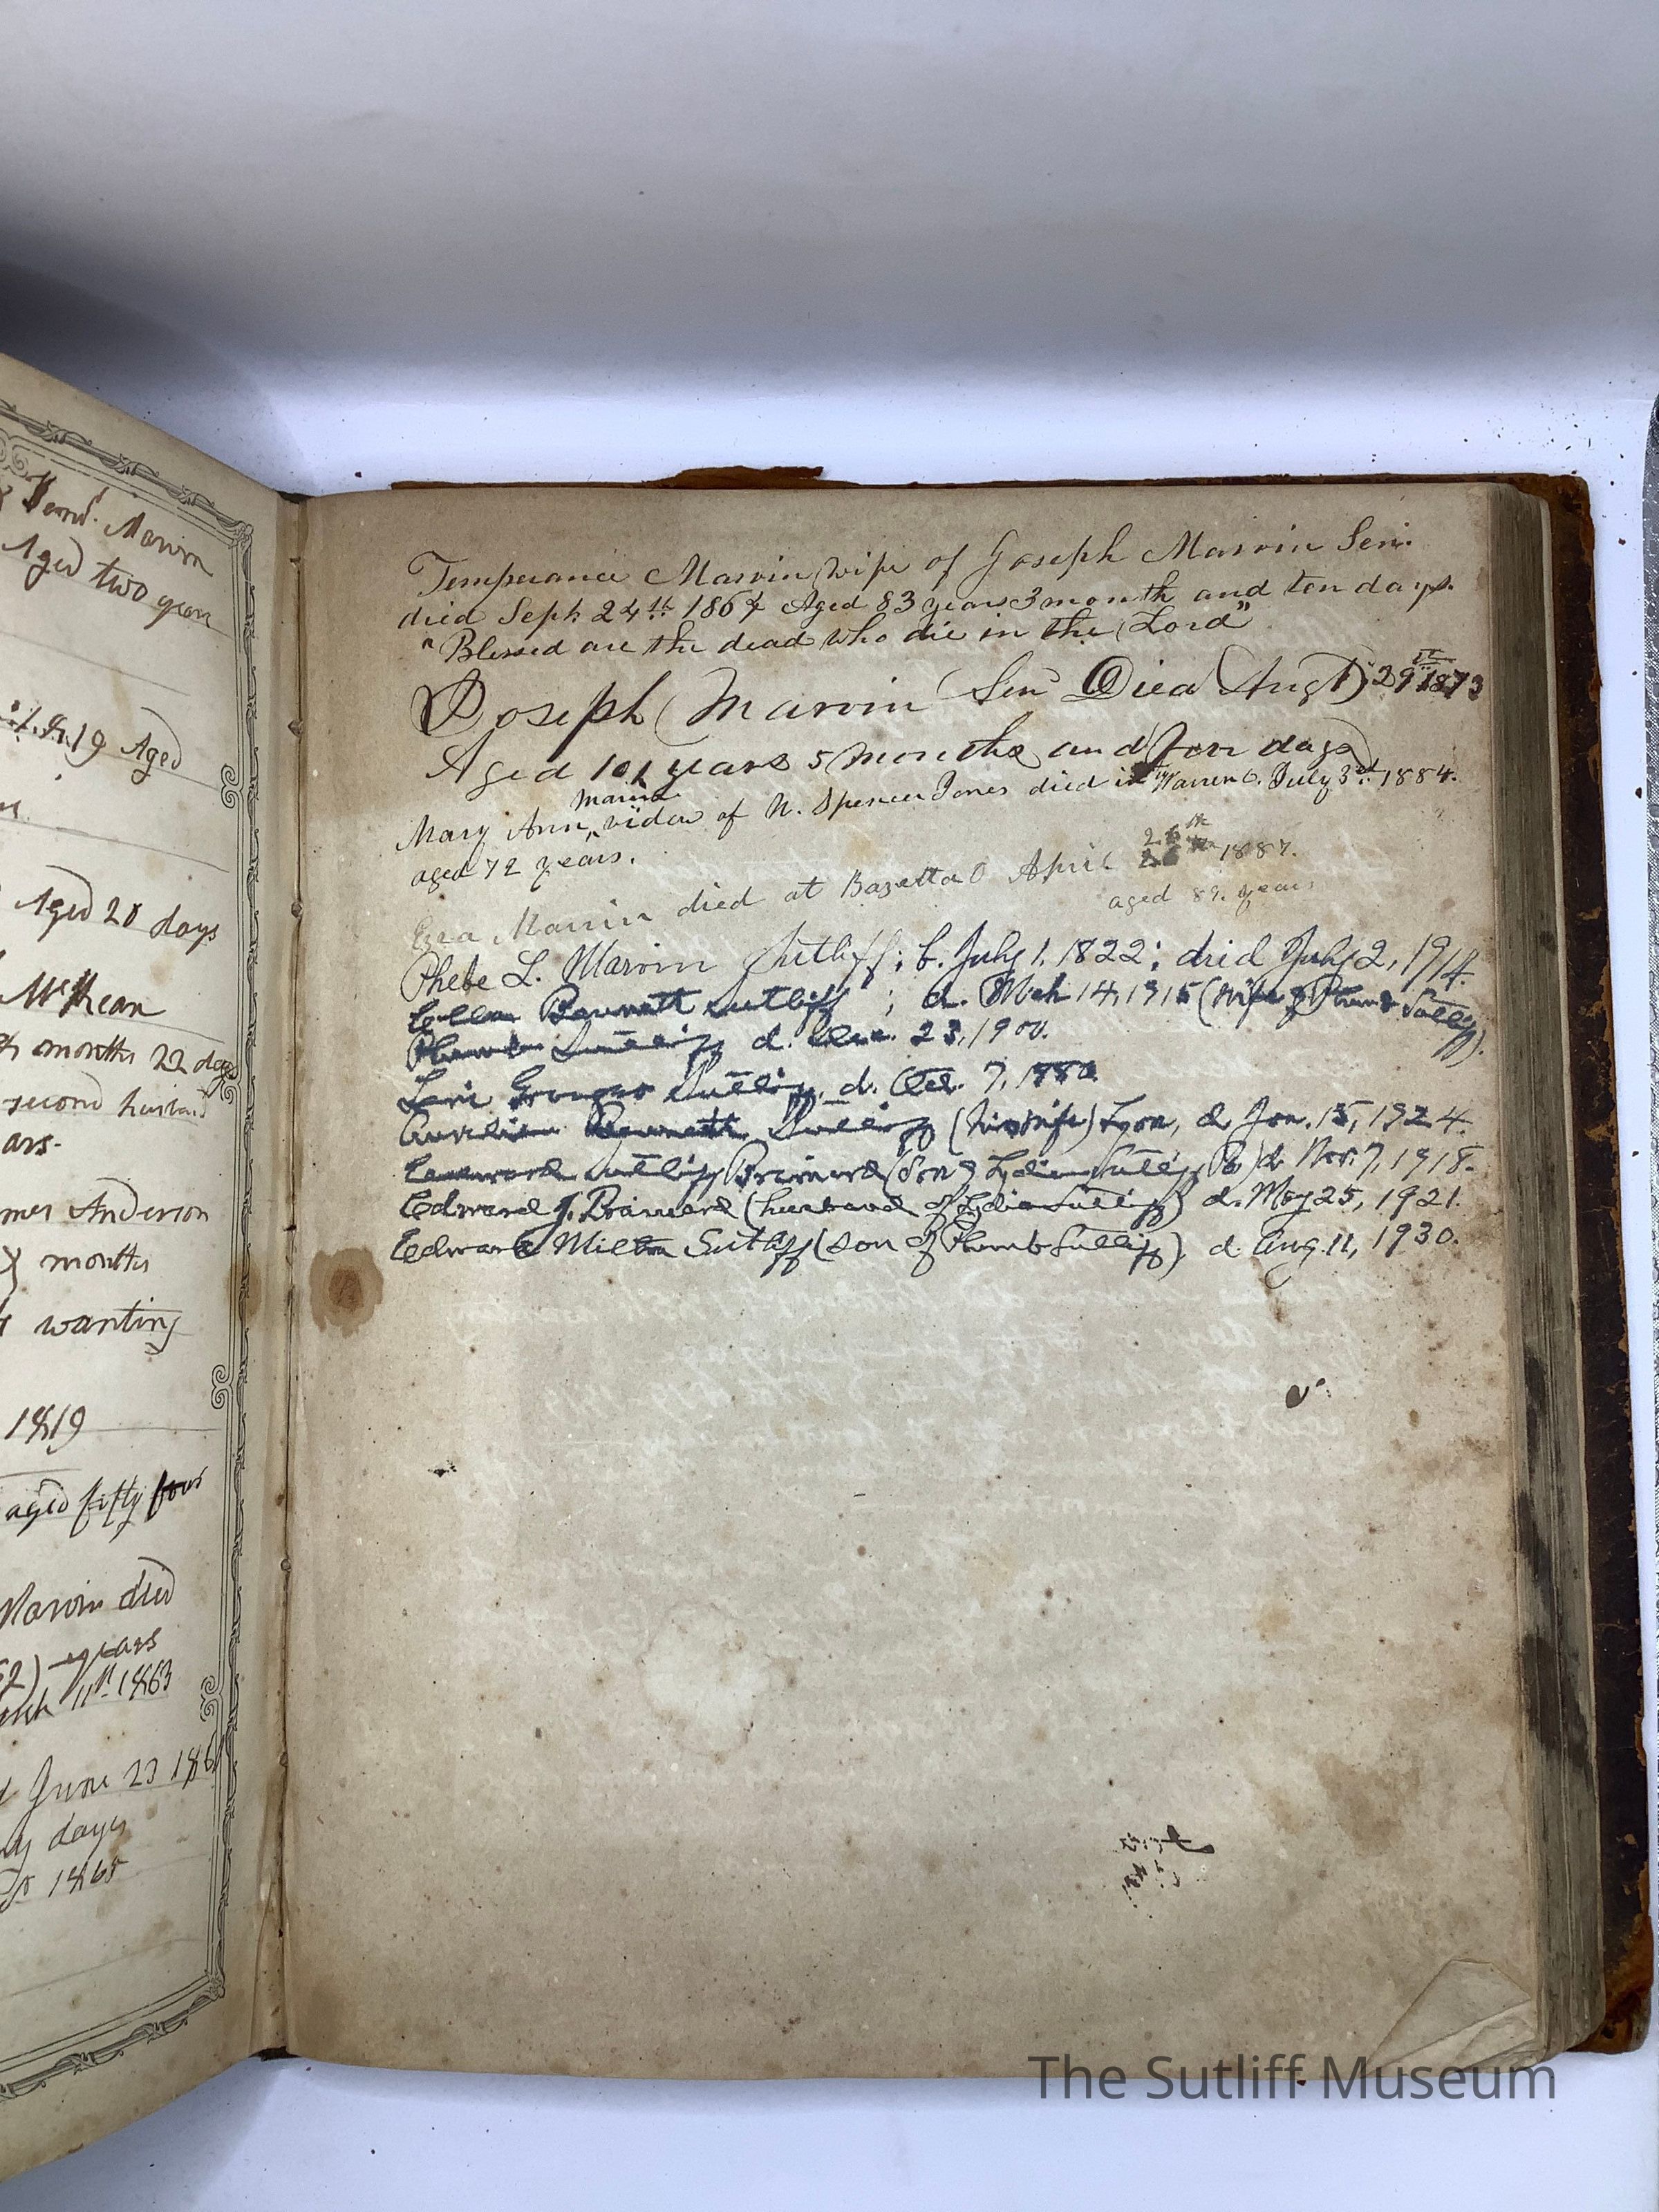 & Temp. Marvin
Aged two years
1819 Aged
Aged 28 days
McKean
months 22 days
second husband
ars.
Anderson
months
wanting
1819
aged fifty four
Marvin died
years
11th 1863
June 23 186
days
1865
Temperance Marvin wife of Joseph Marvin Senr.
died Sept 24th 1864 Aged 83 years 3 month and ten days.
"Blessed are the dead who die in the Lord"
Joseph Marvin Sen Died Augt 29th 1873
Aged 101 years 5 months and ten days
Marvin
Mary Ann, widow of N. Spencer Jones died in Warren O. July 3rd 1884.
aged 72 years.
Ezra Marvin died at Bazetta O April 26th 1887.
aged 82 years
Phebe L. Marvin Sutliff; b. July 1, 1822; died July 2, 1914.
Ellen Bennett Sutliff; d. Mch 14, 1915 (wife of Plumb Sutliff).
Plumb Sutliff d. Dec. 23, 1900.
Levi Sutliff, d. 7, 1880
Bennett Sutliff (his wife) Lyon, d. Jan. 15, 1924.
Sutliff Brainard (son of Lydia Sutliff B.) d. Nov. 7, 1918.
Edward J. Brainard (husband of Lydia Sutliff) d. May 25, 1921.
Edward Milton Sutliff (son of Plumb Sutliff), d. Aug. 11, 1930.
The Sutliff Museum